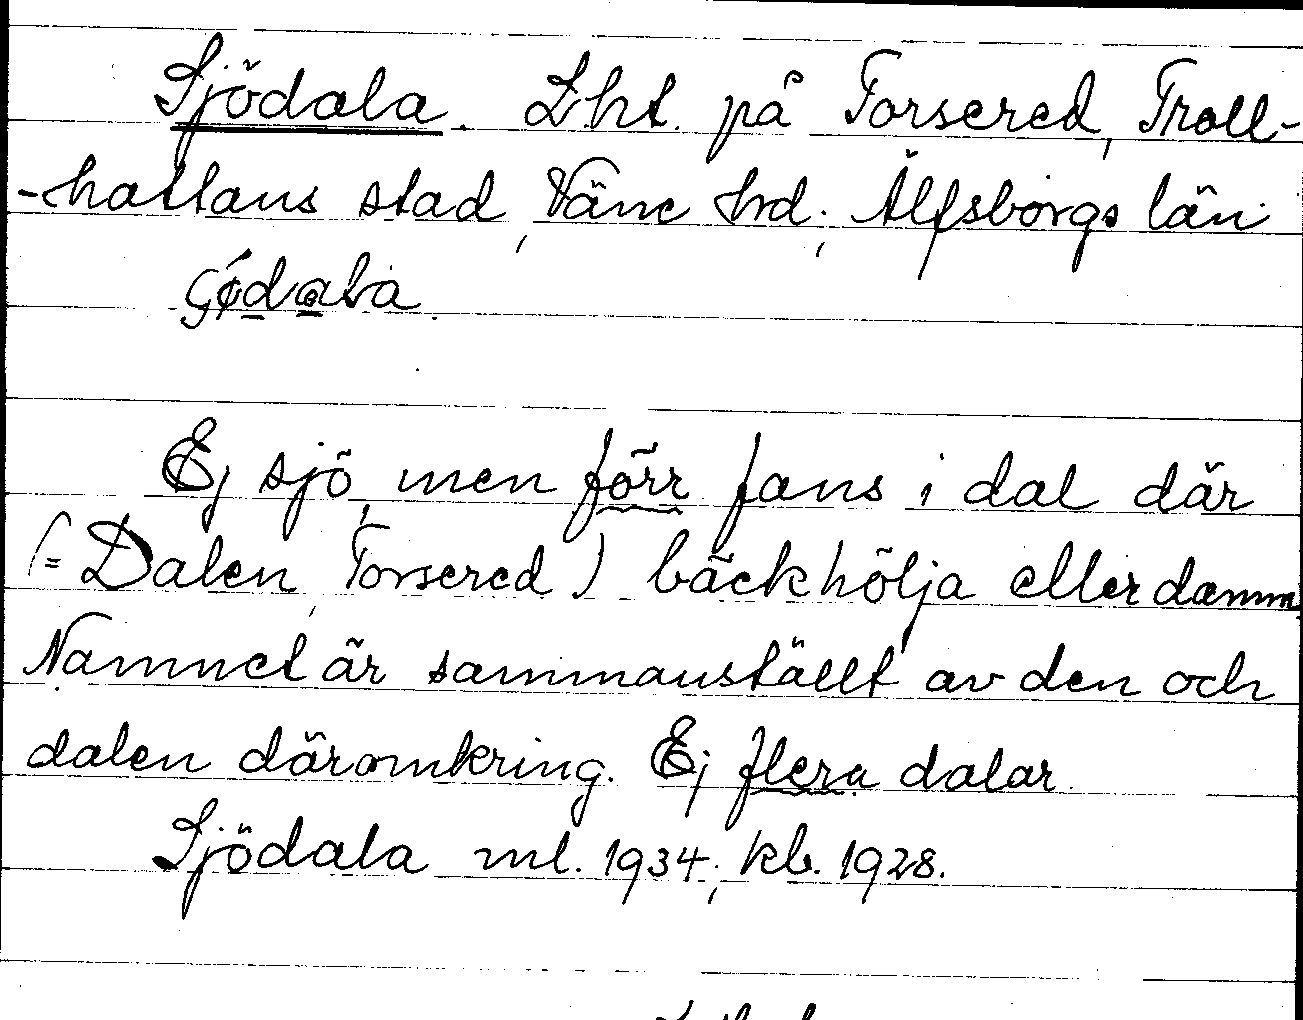 Sjödala. Lht. på Torsered, Troll-
-hattans stad, Väne hrd; Älfsborgs län

Ej sjö, men förr fans i dal där
(= Dalen, Torsered) bäckhölja eller damm
Namnet är sammanställt av den och
dalen däromkring. Ej flera dalar
Sjödala ml. 1934; kb. 1928.